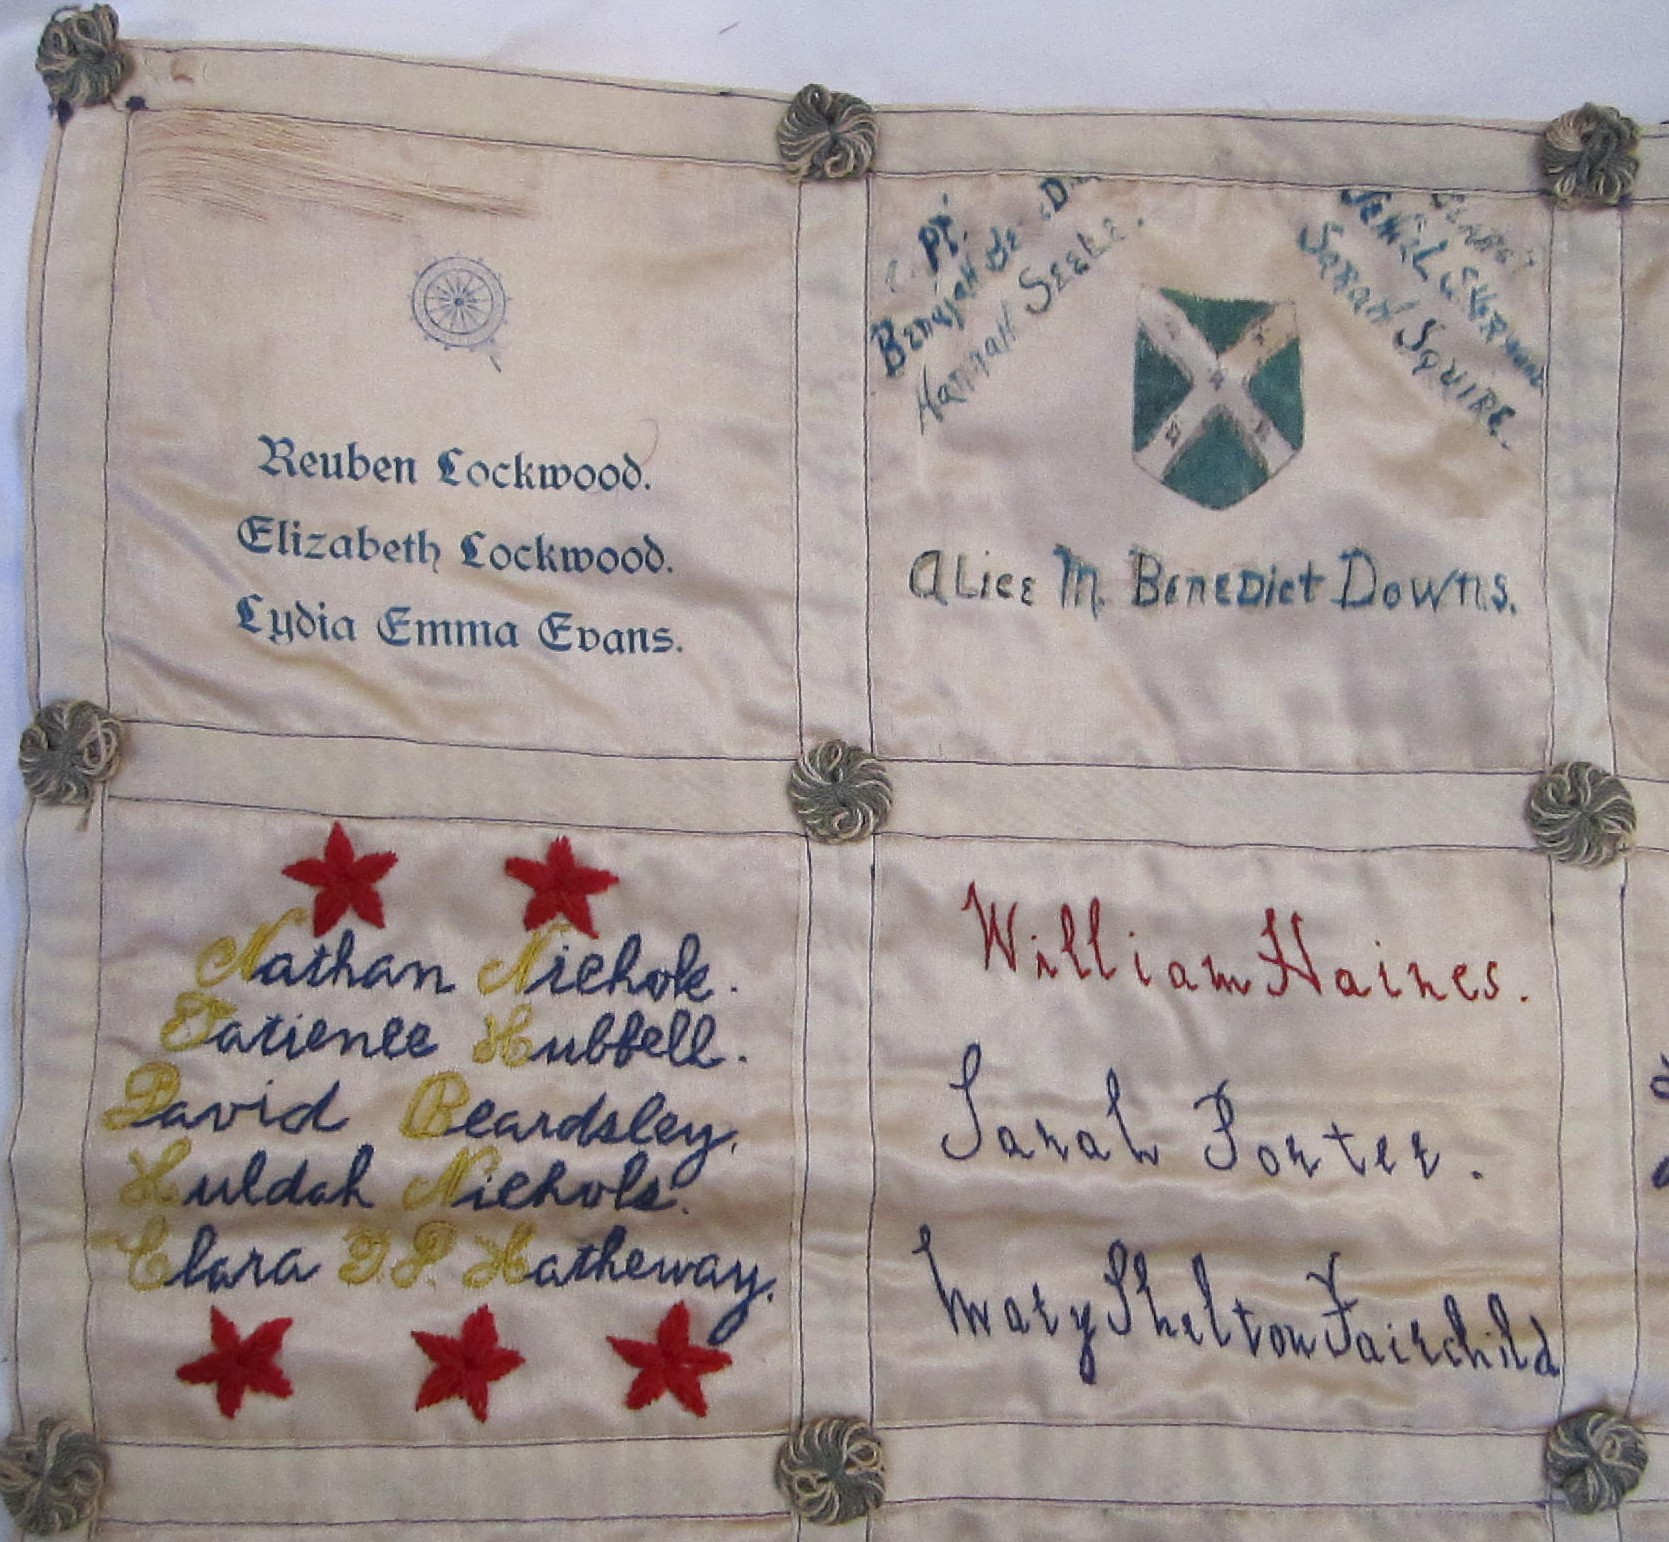 Reuben Lockwood.
Elizabeth Lockwood.
Lydia Emma Evans.
Pt.
Benajah
Hannah Seele.
Sarah Squire.
Alice M. Benedict Downs.
Nathan Nichols.
Patience Hubbell.
David Beardsley.
Huldah Nichols.
Clara T. P. Hatheway.
William Haines.
Sarah Porter.
Mary Shelton Fairchild